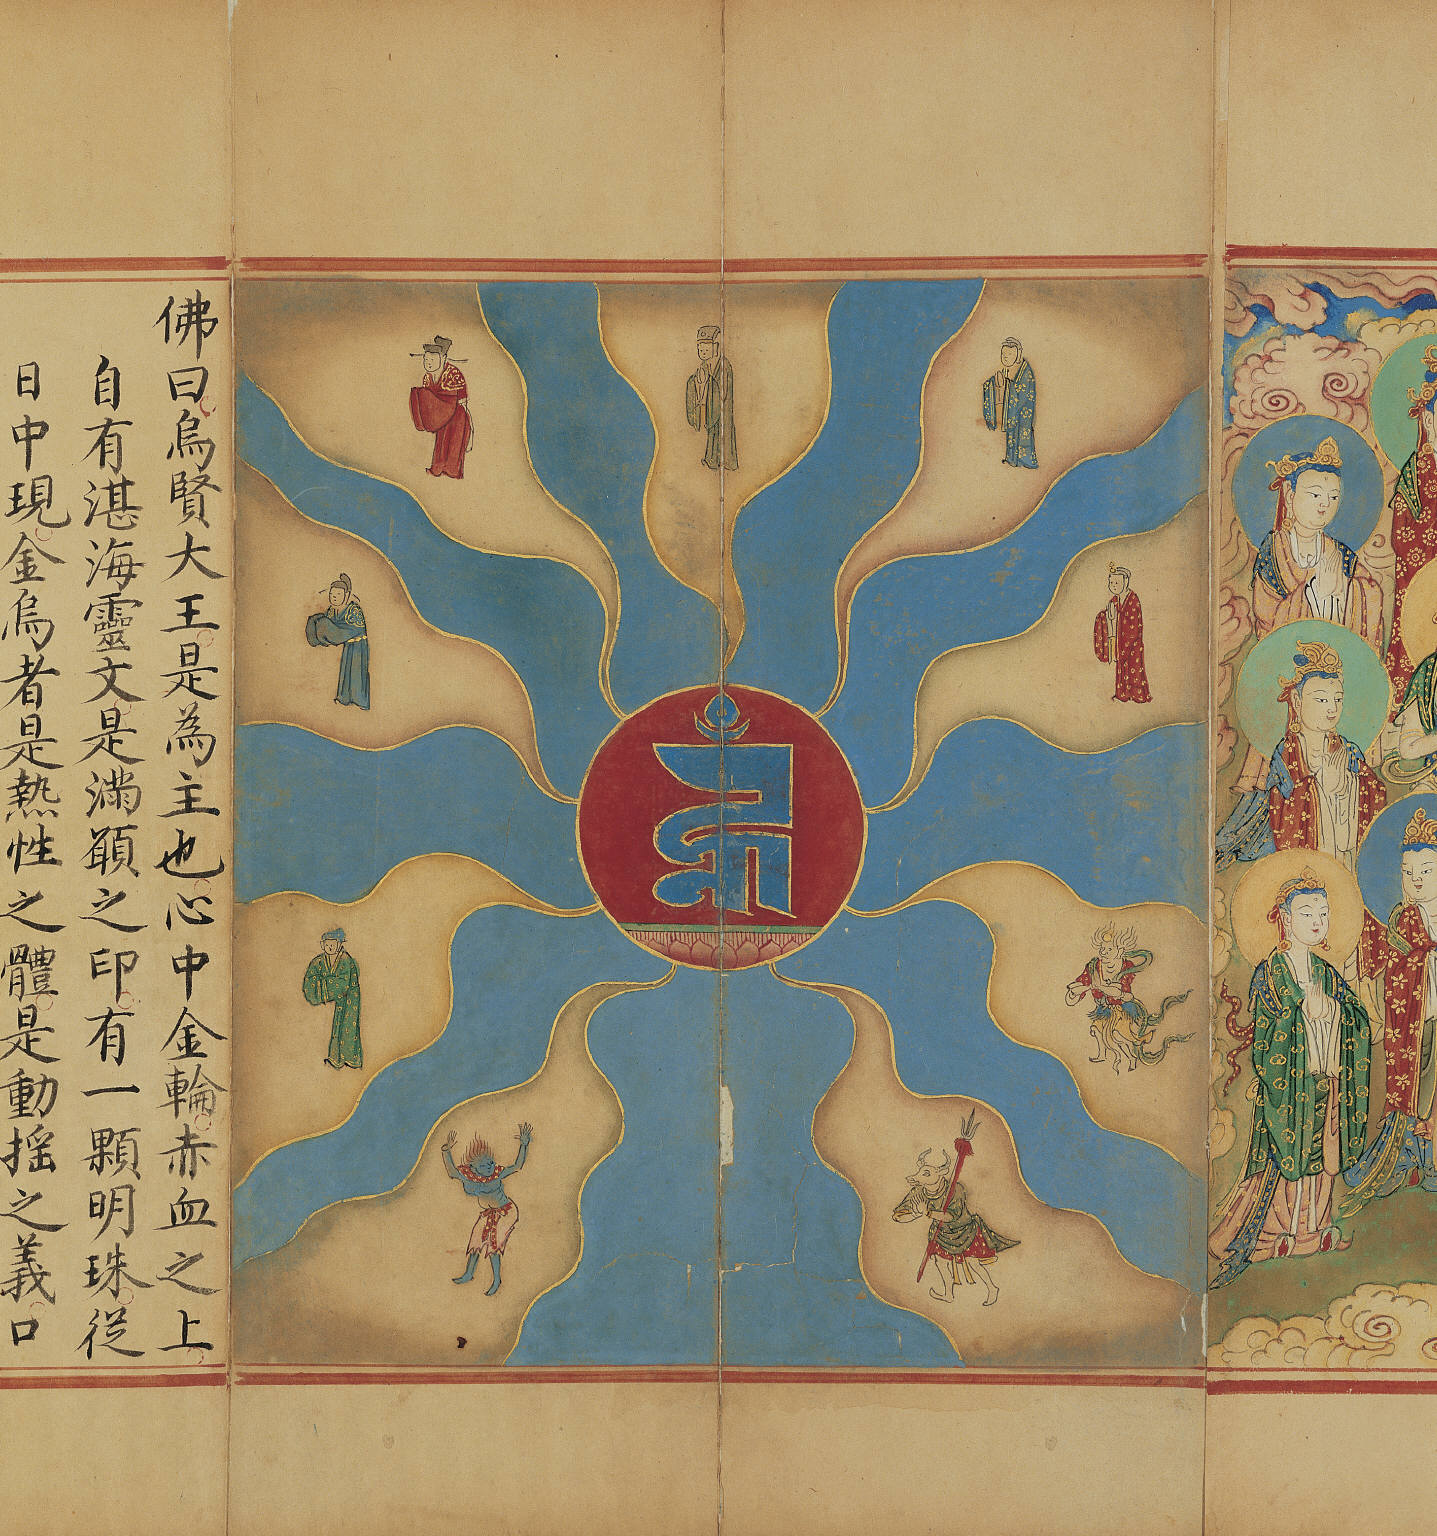 佛曰烏賢大王是為主也心中金輪赤血之上
自有湛海靈文是滿願之印有一顆明珠從
日中現金烏者是熱性之體是動搖之義口